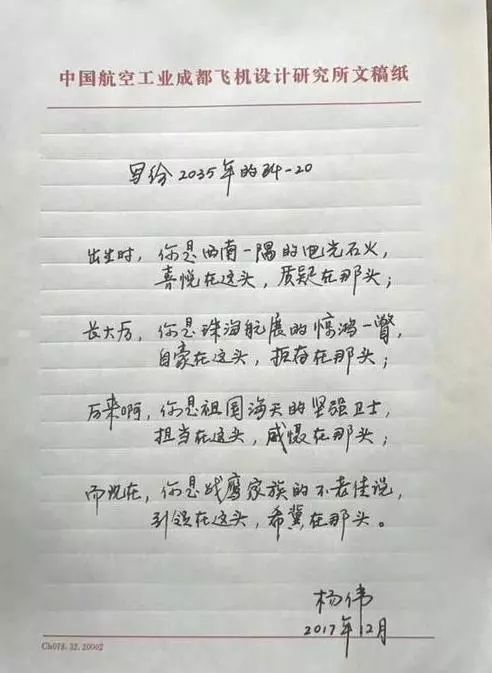 中国航空工业成都飞机设计研究所文稿纸
写给2035年的歼-20
出生时，你是西南一隅的电光石火，
喜悦在这头，质疑在那头；
长大后，你是珠海航展的惊鸿一瞥，
自豪在这头，振奋在那头；
后来啊，你是祖国海天的坚强卫士，
担当在这头，威慑在那头；
而现在，你是战鹰家族的不老传说，
引领在这头，希冀在那头。
杨伟
2017年12月
Ch018.32.20002